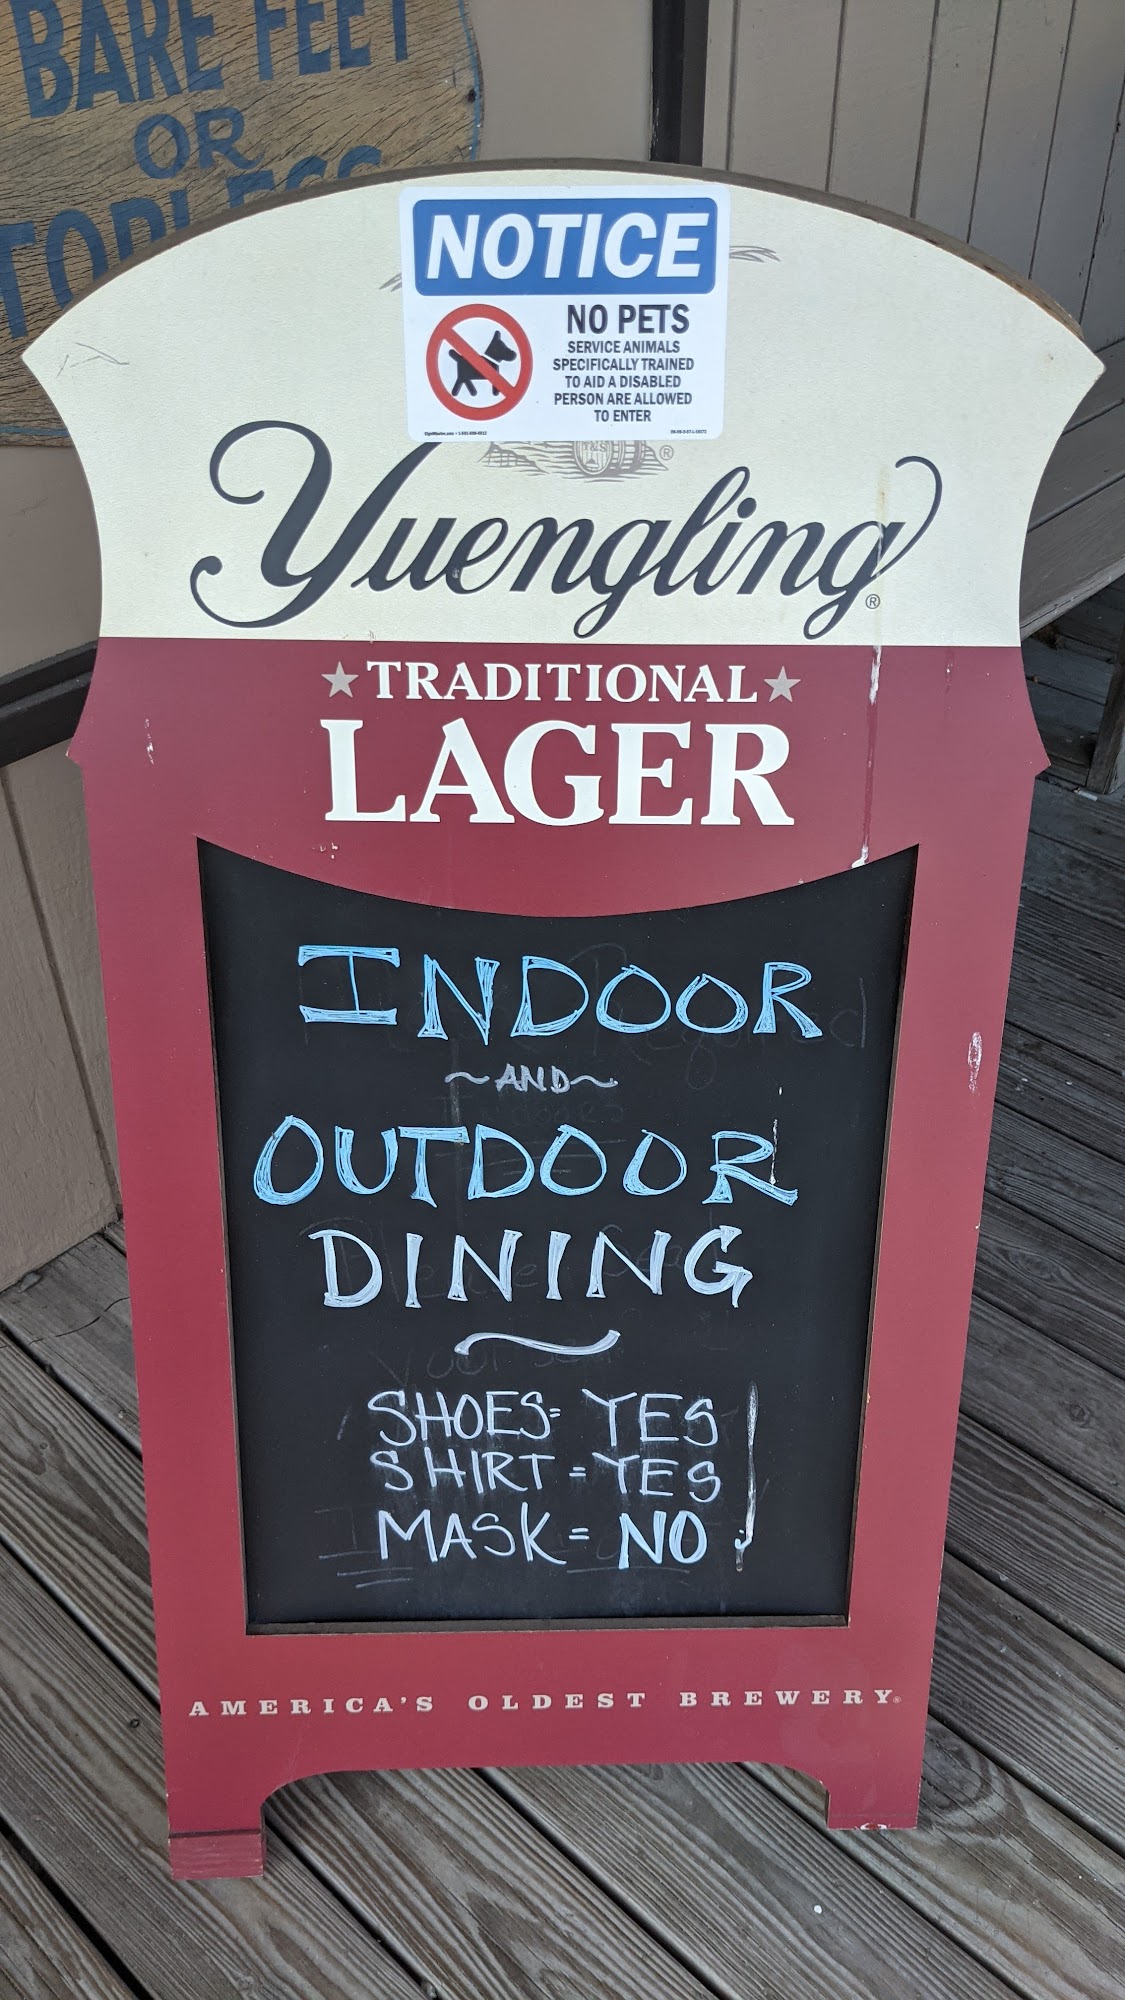 BARE FEET
OR
TOPLESS
NOTICE
NO PETS
SERVICE ANIMALS
SPECIFICALLY TRAINED
TO AID A DISABLED
PERSON ARE ALLOWED
TO ENTER
Yuengling®
TRADITIONAL
LAGER
INDOOR
~AND~
OUTDOOR
DINING
SHOES= YES
SHIRT = YES
MASK = NO
AMERICA'S OLDEST BREWERY®